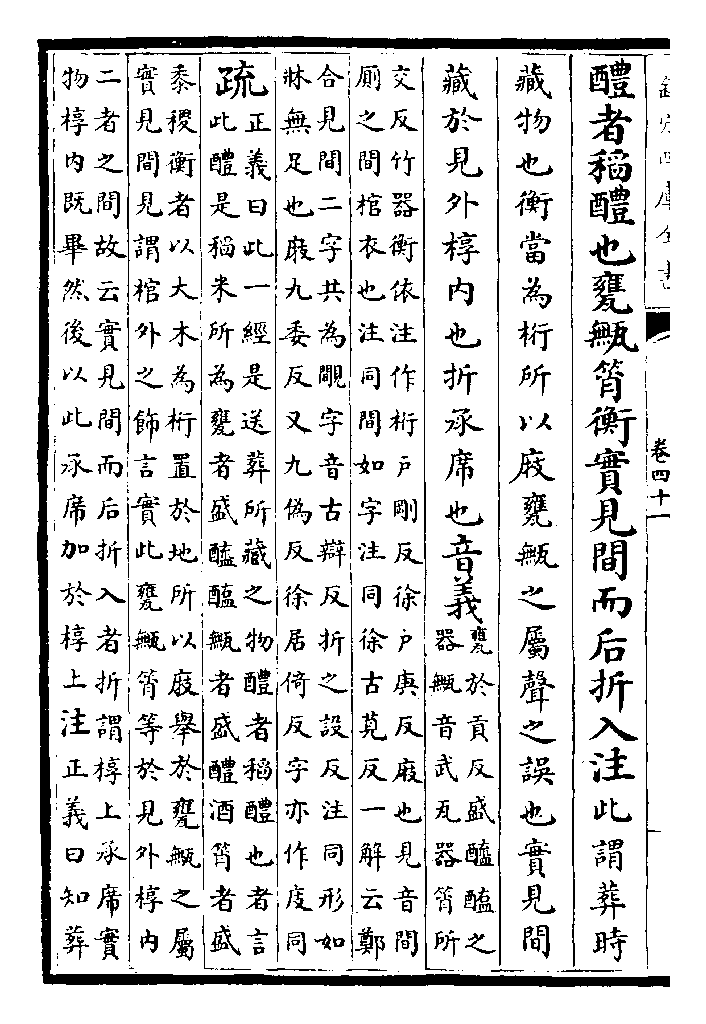 欽定四庫全書
卷四十一
醴者稻醴也甕甒筲衡實見間而后折入注此謂葬時
藏物也衡當為桁所以庪甕甒之屬聲之誤也實見間
藏於見外椁内也折承席也音義甕於貢反盛醯醢之
器甒音武瓦器筲所
交反竹器衡依注作桁户剛反徐户庚反庪也見音間
厠之間棺衣也注同間如字注同徐古莧反一解云鄭
合見間二字共為覸字音古辯反折之設反注同形如
牀無足也庪九委反又九偽反徐居倚反字亦作庋同
疏正義曰此一經是送葬所藏之物醴者稻醴也者言
此醴是稻米所為甕者盛醯醢甒者盛醴酒筲者盛
黍稷衡者以大木為桁置於地所以庪舉於甕甒之屬
實見間見謂棺外之飾言實此甕甒筲等於見外椁内
二者之間故云實見間而后折入者折謂椁上承席實
物椁内既畢然後以此承席加於椁上注正義曰知葬